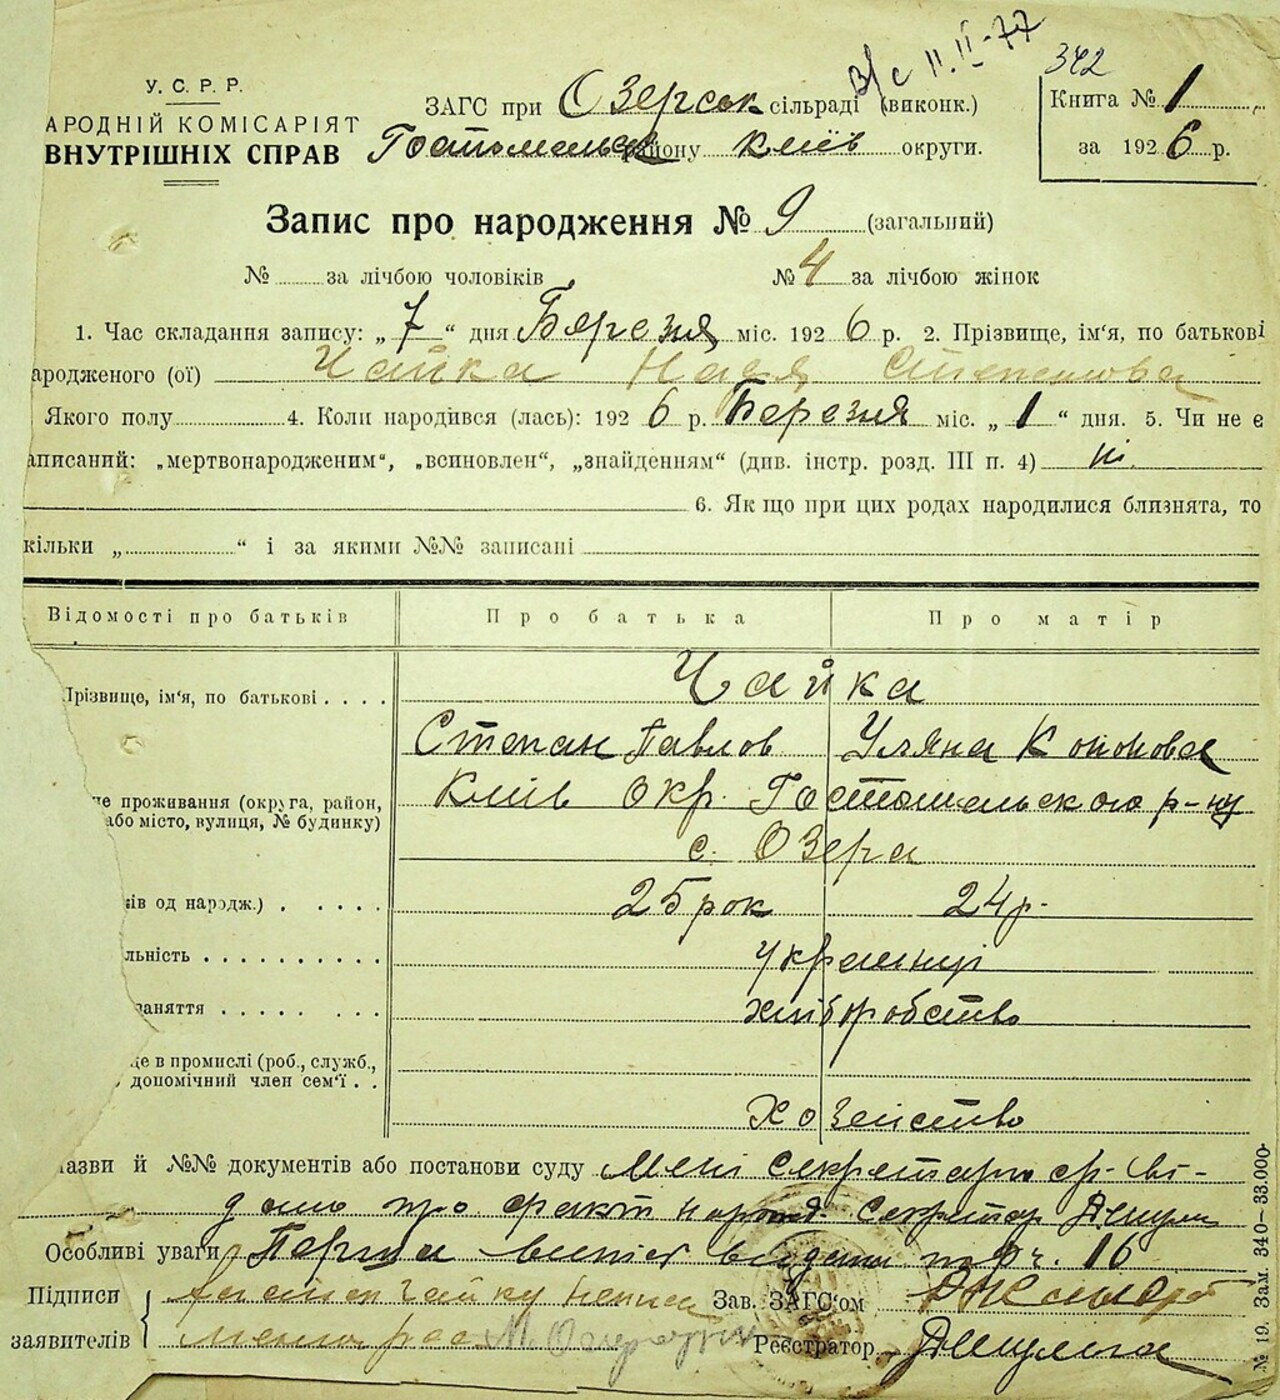 В/с 11.II-77
342
У. С. Р. Р.
АРОДНІЙ КОМІСАРІЯТ
ВНУТРІШНІХ СПРАВ
ЗАГС при Озерськ сільраді (виконк.)
Гостомельськ району Київ округи.
Книга № 1
за 1926 р.
Запис про народження № 9 (загальний)
№ за лічбою чоловіків № 4 за лічбою жінок
1. Час складання запису: „7“ дня Березня міс. 1926 р. 2. Прізвище, ім'я, по батькові
ародженого (ої) Чайка Надя Степанова
Якого полу 4. Коли народився (лась): 1926 р. Березня міс. „1“ дня. 5. Чи не є
аписаний: „мертвонародженим“, „всиновлен“, „знайденням“ (див. інстр. розд. III п. 4) ні.
6. Як що при цих родах народилися близнята, то
кільки „ “ і за якими №№ записані
Відомості про батьків Про батька Про матір
Прізвище, ім'я, по батькові Чайка
Степан Павлов Уляна Кононова
це проживання (округа, район,
або місто, вулиця, № будинку)
Київ окр. Гостомельского р-ну
с. Озера
ків од народж.) 25 рок 24 р.
льність Українці
заняття хліборобство
це в промислі (роб., служб.,
допомічний член сем'ї
Хозяйство
назви й №№ документів або постанови суду Мені Секретарю ср. Ві-
домо про факт народ Секретар
Особливі уваги Перша випис видана 16
Підписи
заявителів
Чайку
Зав. ЗАГС'ом
Реєстратор
№ 19. Зам. 340–33.000-